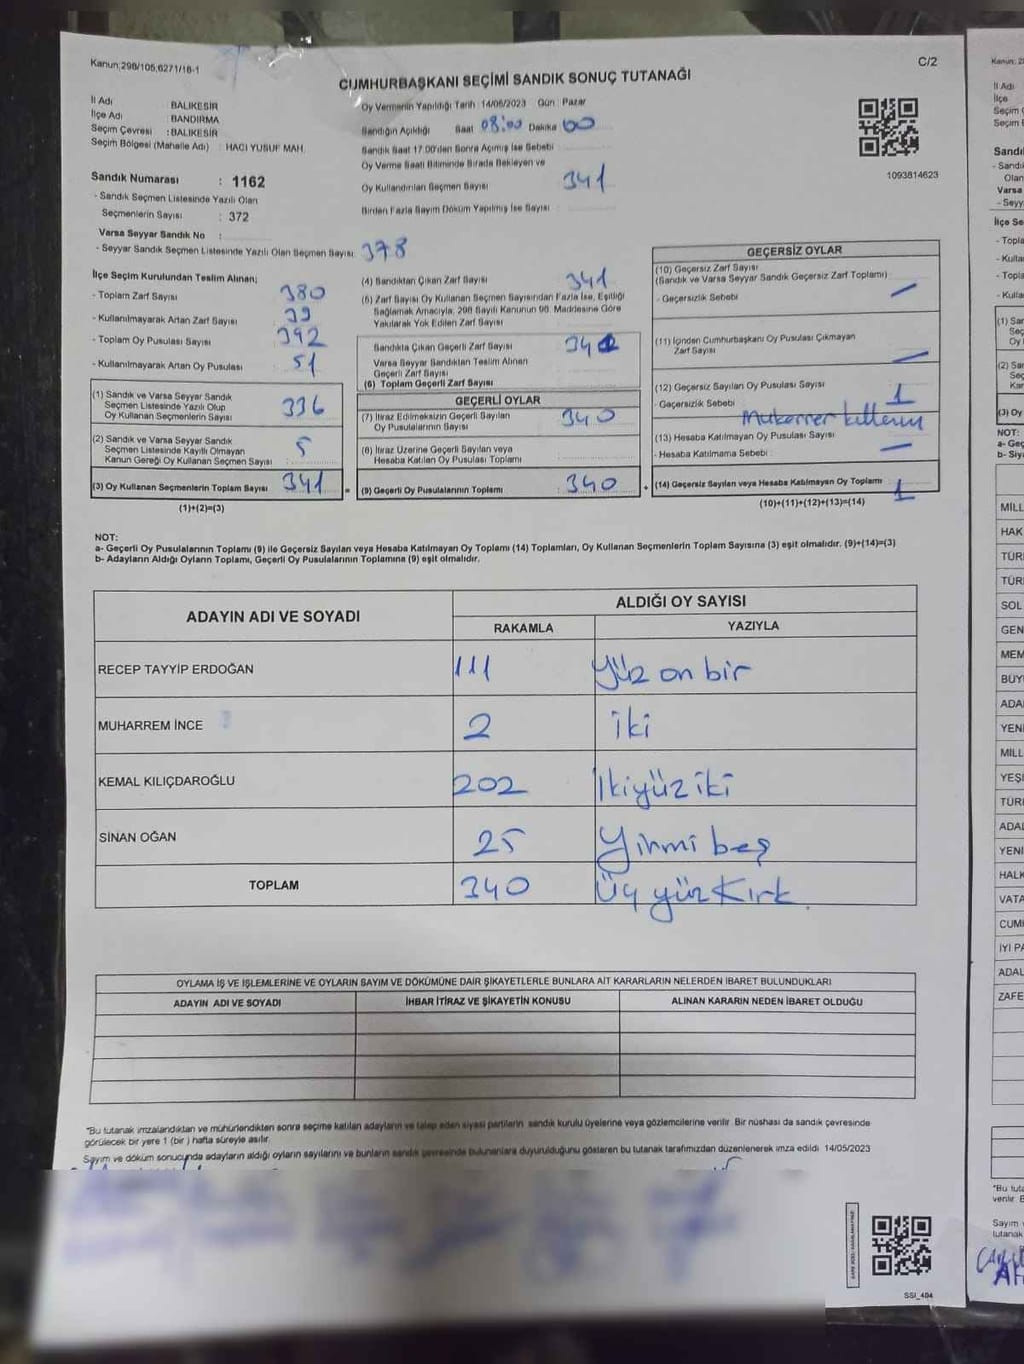 Kanun:298/105,6271/18-1
C/2
CUMHURBAŞKANI SEÇİMİ SANDIK SONUÇ TUTANAĞI
İl Adı : BALIKESİR
İlçe Adı : BANDIRMA
Seçim Çevresi : BALIKESİR
Seçim Bölgesi (Mahalle Adı) : HACI YUSUF MAH.
Sandık Numarası : 1162
- Sandık Seçmen Listesinde Yazılı Olan
Seçmenlerin Sayısı : 372
Varsa Seyyar Sandık No :
- Seyyar Sandık Seçmen Listesinde Yazılı Olan Seçmen Sayısı: 378
Oy Vermenin Yapıldığı Tarih 14/05/2023 Gün: Pazar
Sandığın Açıldığı Saat 08:00 Dakika 00
Sandık Saat 17.00'den Sonra Açılmış İse Sebebi
Oy Verme Saati Bitiminde Sırada Bekleyen ve
Oy Kullandırılan Seçmen Sayısı 341
Birden Fazla Sayım Döküm Yapılmış İse Sayısı
1093814623
İlçe Seçim Kurulundan Teslim Alınan;
- Toplam Zarf Sayısı 380
- Kullanılmayarak Artan Zarf Sayısı 39
- Toplam Oy Pusulası Sayısı 392
- Kullanılmayarak Artan Oy Pusulası 51
(1) Sandık ve Varsa Seyyar Sandık
Seçmen Listesinde Yazılı Olup
Oy Kullanan Seçmenlerin Sayısı 336
(2) Sandık ve Varsa Seyyar Sandık
Seçmen Listesinde Kayıtlı Olmayan
Kanun Gereği Oy Kullanan Seçmen Sayısı 5
(3) Oy Kullanan Seçmenlerin Toplam Sayısı 341
(1)+(2)=(3)
(4) Sandıktan Çıkan Zarf Sayısı 341
(5) Zarf Sayısı Oy Kullanan Seçmen Sayısından Fazla İse, Eşitliği
Sağlamak Amacıyla, 298 Sayılı Kanunun 98. Maddesine Göre
Yakılarak Yok Edilen Zarf Sayısı
Sandıkta Çıkan Geçerli Zarf Sayısı
Varsa Seyyar Sandıktan Teslim Alınan
Geçerli Zarf Sayısı
(6) Toplam Geçerli Zarf Sayısı
GEÇERLİ OYLAR
(7) İtiraz Edilmeksizin Geçerli Sayılan
Oy Pusulalarının Sayısı 340
(8) İtiraz Üzerine Geçerli Sayılan veya
Hesaba Katılan Oy Pusulası Toplamı
(9) Geçerli Oy Pusulalarının Toplamı : 340
GEÇERSİZ OYLAR
(10) Geçersiz Zarf Sayısı
(Sandık ve Varsa Seyyar Sandık Geçersiz Zarf Toplamı)
- Geçersizlik Sebebi
(11) İçinden Cumhurbaşkanı Oy Pusulası Çıkmayan
Zarf Sayısı
(12) Geçersiz Sayılan Oy Pusulası Sayısı 1
- Geçersizlik Sebebi Mükerrer
(13) Hesaba Katılmayan Oy Pusulası Sayısı
- Hesaba Katılmama Sebebi :
(14) Geçersiz Sayılan veya Hesaba Katılmayan Oy Toplamı 1
(10)+(11)+(12)+(13)=(14)
NOT:
a- Geçerli Oy Pusulalarının Toplamı (9) ile Geçersiz Sayılan veya Hesaba Katılmayan Oy Toplamı (14) Toplamları, Oy Kullanan Seçmenlerin Toplam Sayısına (3) eşit olmalıdır. (9)+(14)=(3)
b- Adayların Aldığı Oyların Toplamı, Geçerli Oy Pusulalarının Toplamına (9) eşit olmalıdır.
ADAYIN ADI VE SOYADI
ALDIĞI OY SAYISI
RAKAMLA YAZIYLA
RECEP TAYYİP ERDOĞAN 111 Yüz on bir
MUHARREM İNCE 2 İki
KEMAL KILIÇDAROĞLU 202 İkiyüz iki
SİNAN OĞAN 25 Yirmi beş
TOPLAM 340 Üç yüz Kırk.
OYLAMA İŞ VE İŞLEMLERİNE VE OYLARIN SAYIM VE DÖKÜMÜNE DAİR ŞİKAYETLERLE BUNLARA AİT KARARLARIN NELERDEN İBARET BULUNDUKLARI
ADAYIN ADI VE SOYADI İHBAR İTİRAZ VE ŞİKAYETİN KONUSU ALINAN KARARIN NEDEN İBARET OLDUĞU
"Bu tutanak imzalandıktan ve mühürlendikten sonra seçime katılan adayların ve talep eden siyasi partilerin sandık kurulu üyelerine veya gözlemcilerine verilir. Bir nüshası da sandık çevresinde
görülecek bir yere 1 (bir) hafta süreyle asılır.
Sayım ve döküm sonucunda adayların aldığı oyların sayılarını ve bunların sandık çevresinde bulunanlara duyurulduğunu gösteren bu tutanak tarafımızdan düzenlenerek imza edildi. 14/05/2023
SSI_404